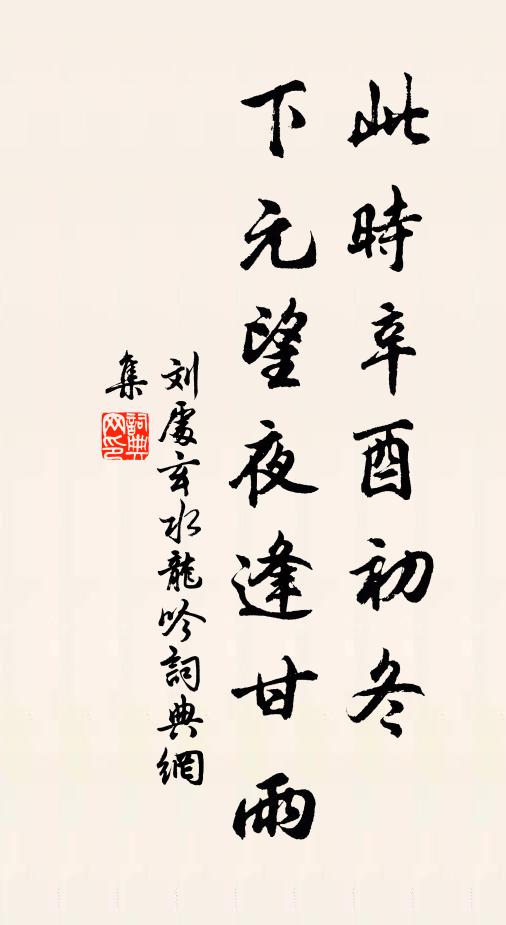 此時辛酉初冬
下元望夜逢甘雨
刘處玄水龍吟詞典網
集
詞典网印